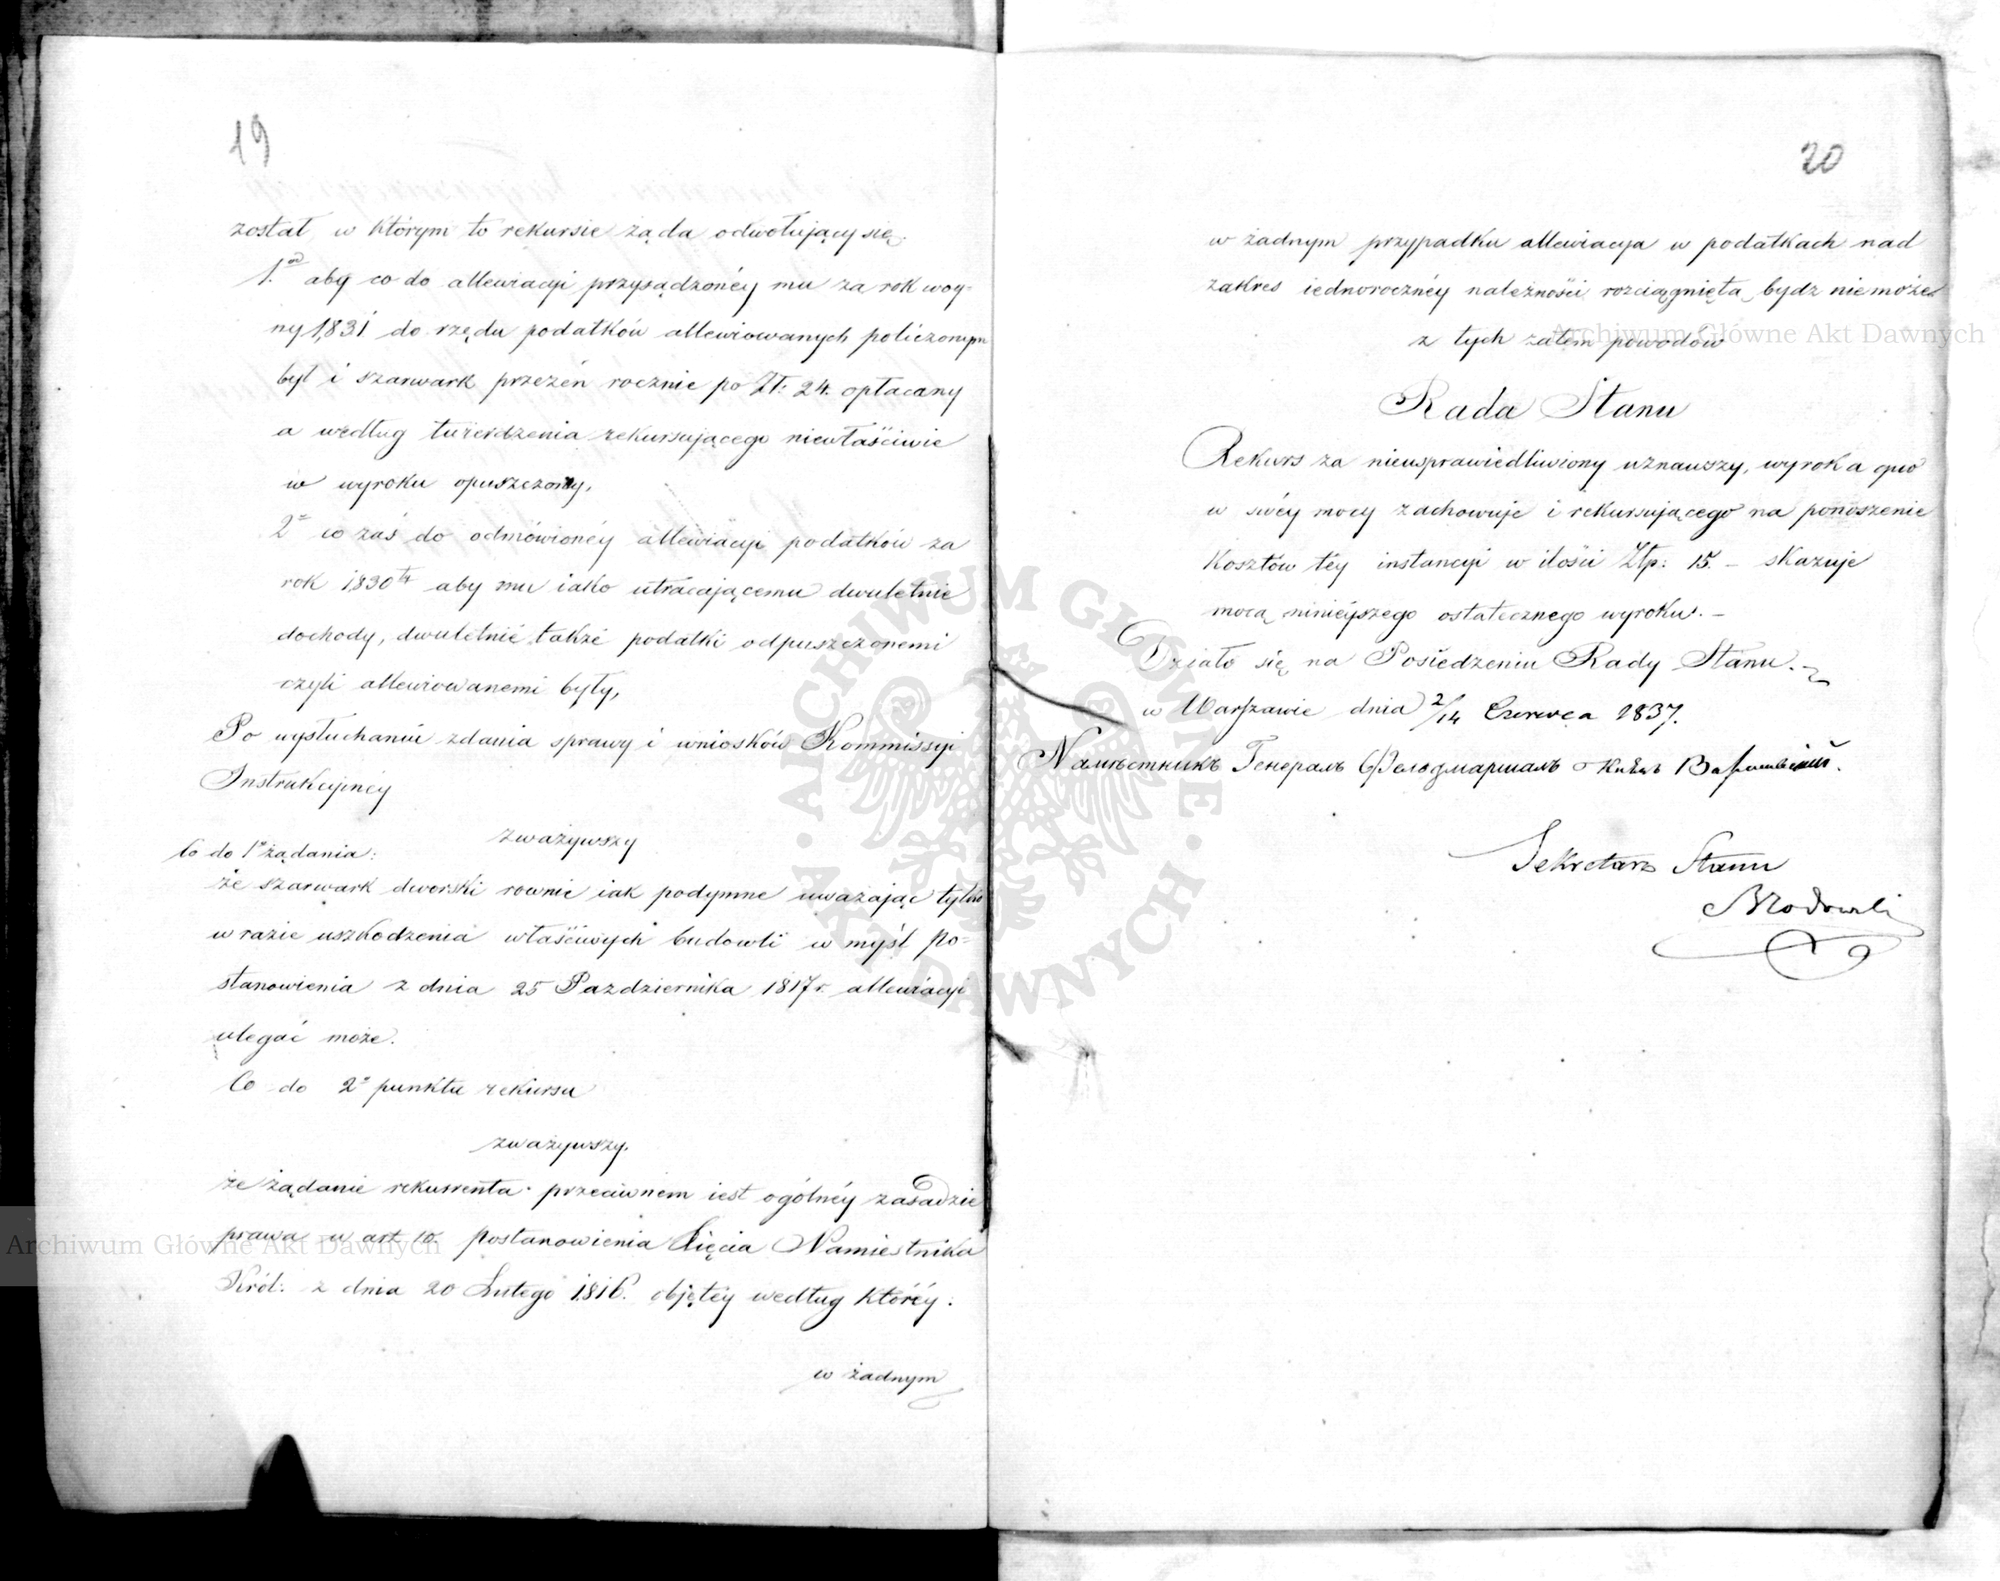 19
został, w którym to rekursie żąda odwołujący się.
1.o aby co do allewiacyi przysądzonéy mu za rok woy-
ny 1831 do rzędu podatków allewiowanych policzonym
był i szarwark przezeń rocznie po Zł: 24. opłacany
a według twierdzenia rekursującego niewłaściwie
w wyroku opuszczony,
2o co zaś do odmówionéy allewiacyi podatków za
rok 1830ty aby mu iako utracającemu dwuletnie
dochody, dwuletnie także podatki odpuszczonemi
czyli allewiowanemi były,
Po wysłuchaniu zdania sprawy i wniosków Kommissyi
Instrukcyinéy
zważywszy
Co do 1o żądania:
że szarwark dworski rownie iak podymne uważaiąc tylko
w razie uszkodzenia właściwych budowli w myśl Po-
stanowienia z dnia 25 Pazdziernika 1817 r. allewiacyi
ulegać może.
Co do 2o punktu rekursu
zważywszy,
że żądanie rekurrenta przeciwnem iest ogólnéy zasadzie
prawa w art. 10. Postanowienia Xięcia Namiestnika
Król: z dnia 20 Lutego 1816. objętey według któréy:
w żadnym
20
w żadnym przypadku allewiacya w podatkach nad
zakres iednorocznéy należności rozciągnięta bydz nie może
z tych zatem powodów
Rada Stanu
Rekurs za nieusprawiedliwiony uznawszy, wyrok a quo
w swéy mocy zachowuje i rekursującego na ponoszenie
kosztów téy instancyi w ilości Złp: 15. – skazuje
mocą ninieyszego ostatecznego wyroku. –
Działo się na Posiedzeniu Rady Stanu. –
w Warszawie dnia 2/14 Czerwca 1837.
Намѣстникъ Генералъ Фельдмаршалъ Князь Варшавскій.
Sekretarz Stanu
Brodowski
Archiwum Główne Akt Dawnych
Archiwum Główne Akt Dawnych
ARCHIWUM GŁÓWNE AKT DAWNYCH